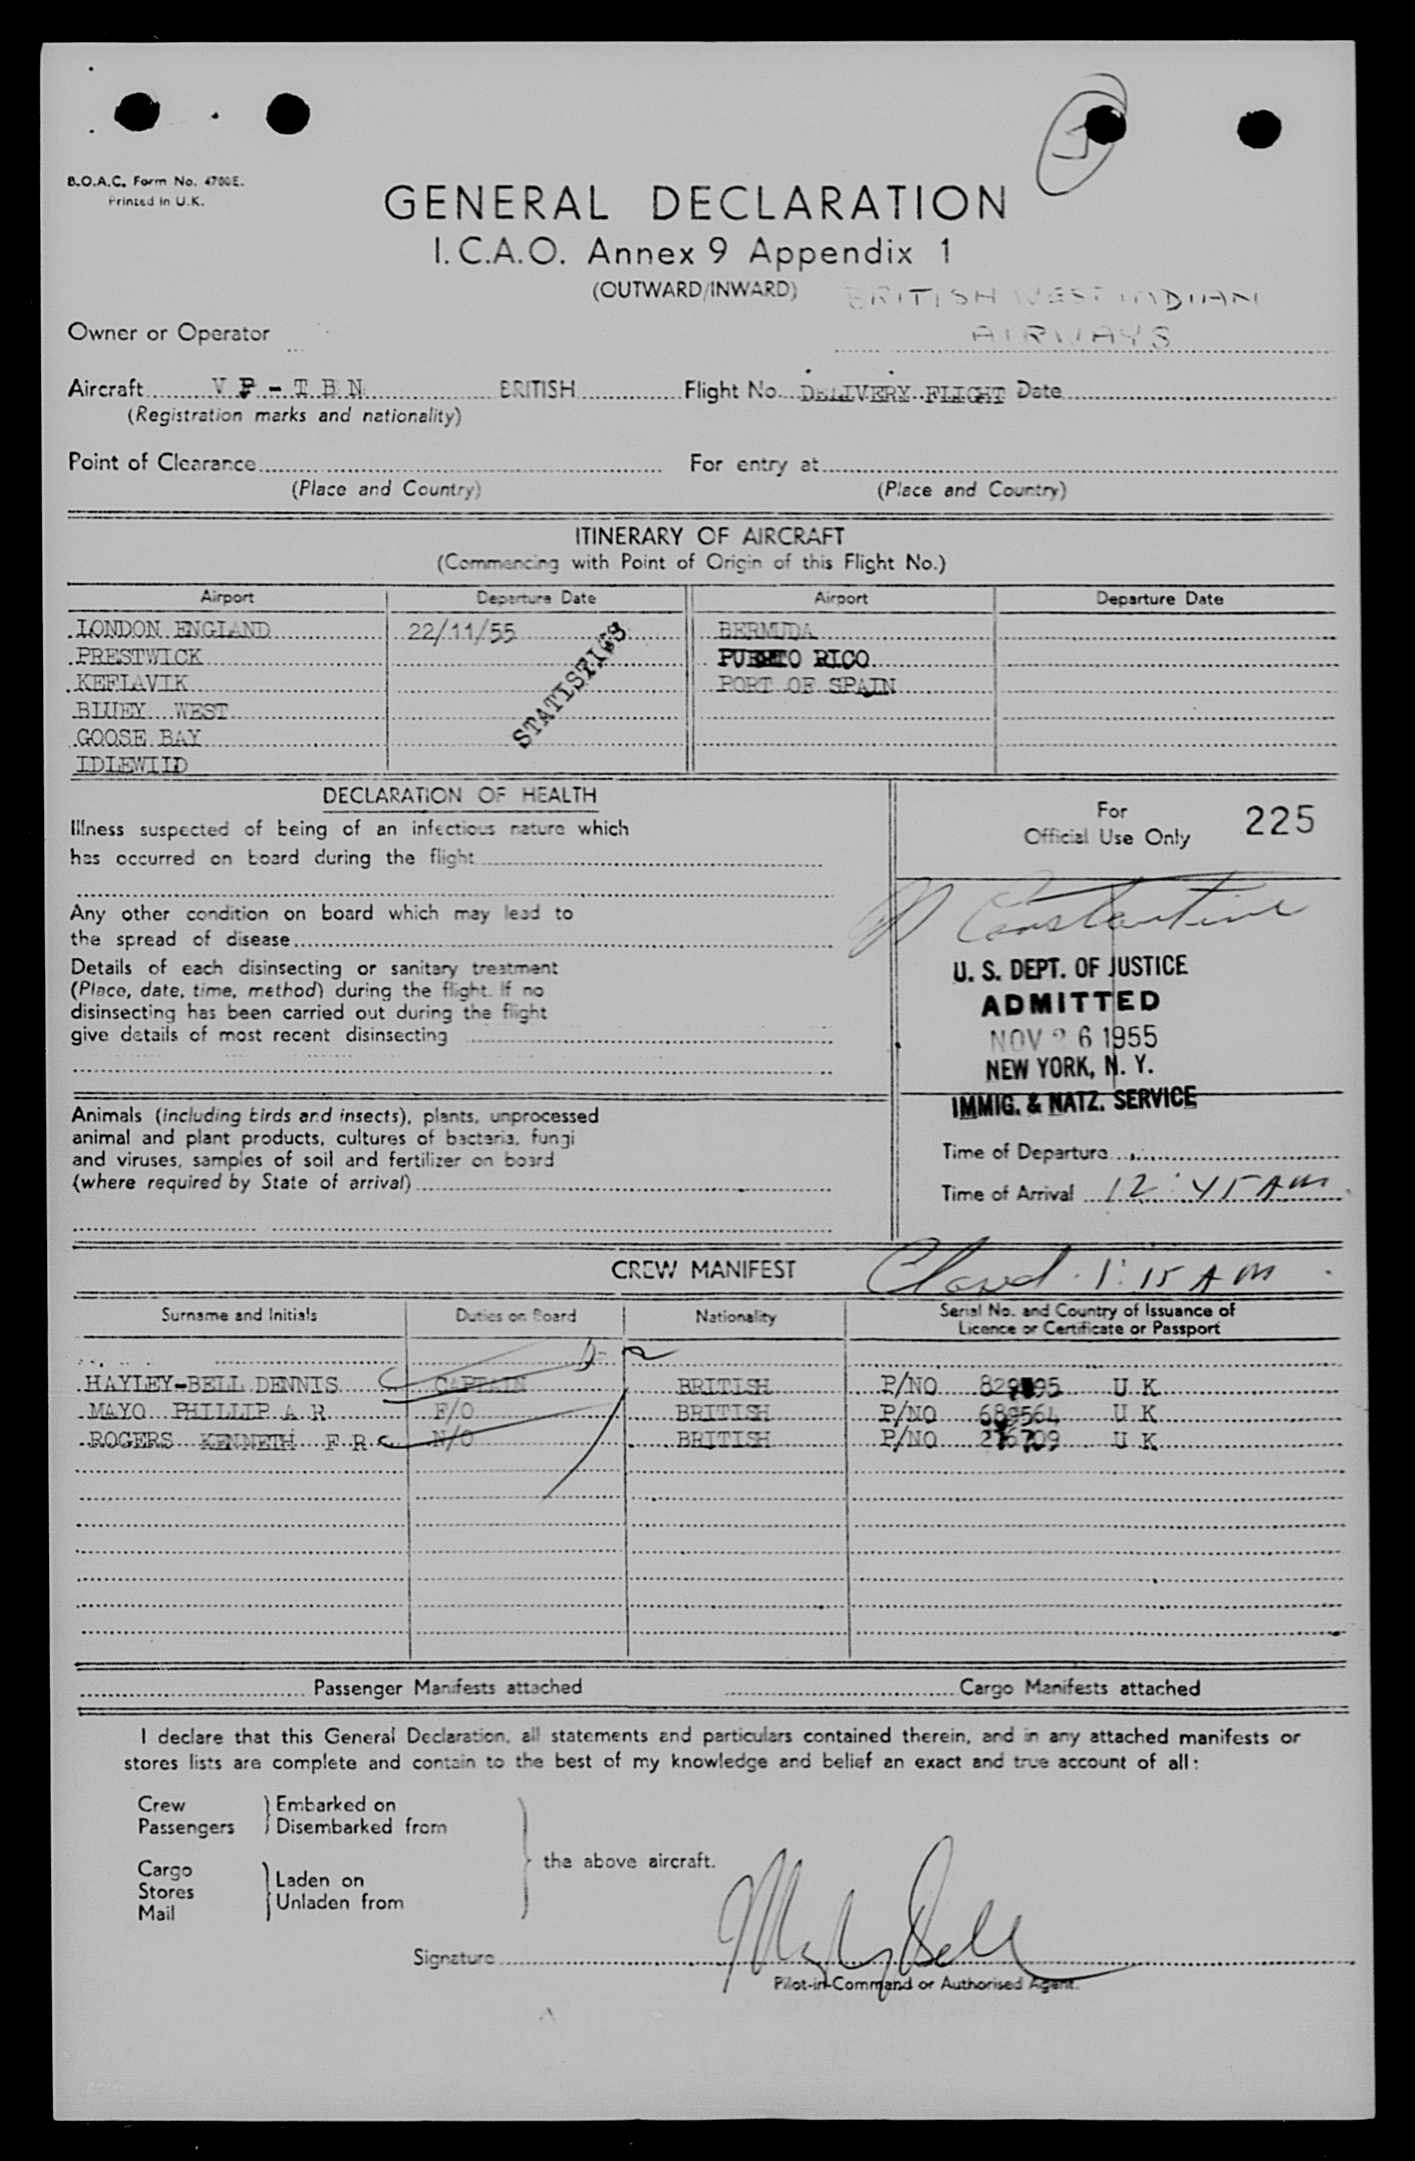 B.O.A.C. Form No. 4700E.
Printed in U.K.
GENERAL DECLARATION
I.C.A.O. Annex 9 Appendix 1
(OUTWARD/INWARD)
BRITISH WEST INDIAN
Owner or Operator AIRWAYS
Aircraft VP-TBN BRITISH Flight No. DELIVERY FLIGHT Date
(Registration marks and nationality)
Point of Clearance For entry at
(Place and Country) (Place and Country)
ITINERARY OF AIRCRAFT
(Commencing with Point of Origin of this Flight No.)
Airport Departure Date Airport Departure Date
LONDON ENGLAND 22/11/55 BERMUDA
PRESTWICK PUERTO RICO
KEFLAVIK PORT OF SPAIN
BLUEY WEST
GOOSE BAY
IDLEWILD
STATISTICS
DECLARATION OF HEALTH
Illness suspected of being of an infectious nature which
has occurred on board during the flight
Any other condition on board which may lead to
the spread of disease
Details of each disinsecting or sanitary treatment
(Place, date, time, method) during the flight. If no
disinsecting has been carried out during the flight
give details of most recent disinsecting
Animals (including birds and insects), plants, unprocessed
animal and plant products, cultures of bacteria, fungi
and viruses, samples of soil and fertilizer on board
(where required by State of arrival)
For
Official Use Only 225
Constantine
U. S. DEPT. OF JUSTICE
ADMITTED
NOV 26 1955
NEW YORK, N. Y.
IMMIG. & NATZ. SERVICE
Time of Departure
Time of Arrival 12:45 AM
CREW MANIFEST 1:15 AM
Surname and Initials Duties on Board Nationality Serial No. and Country of Issuance of
Licence or Certificate or Passport
D-2
HAYLEY-BELL DENNIS CAPTAIN BRITISH P/NO U K
MAYO PHILLIP A R F/O BRITISH P/NO 689564 U K
ROGERS KENNETH F R N/O BRITISH P/NO U K
Passenger Manifests attached Cargo Manifests attached
I declare that this General Declaration, all statements and particulars contained therein, and in any attached manifests or
stores lists are complete and contain to the best of my knowledge and belief an exact and true account of all:
Crew Embarked on
Passengers Disembarked from
the above aircraft.
Cargo
Stores Laden on
Mail Unladen from
Signature
Pilot-in-Command or Authorised Agent.